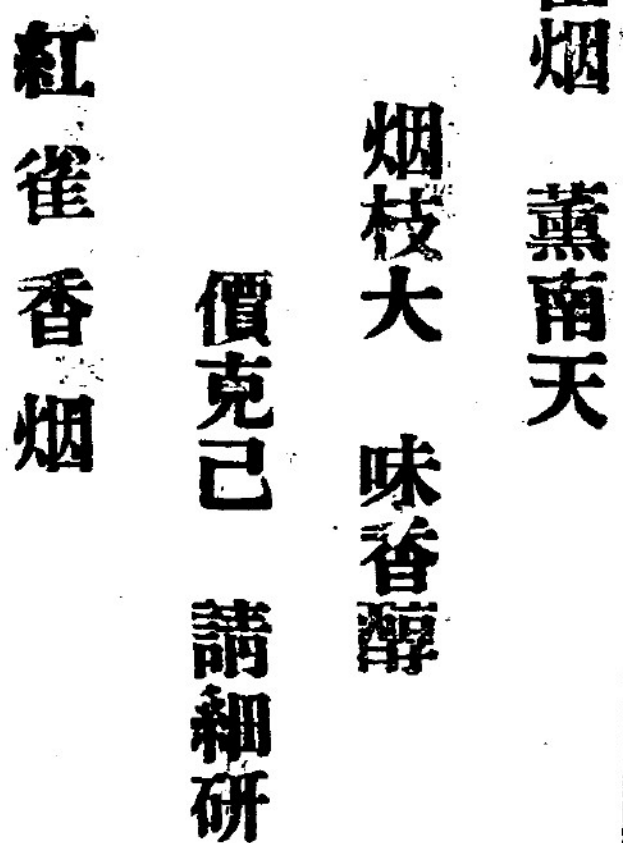 烟 薰南天
烟枝大 味香醇
價克己 請細研
紅雀香烟